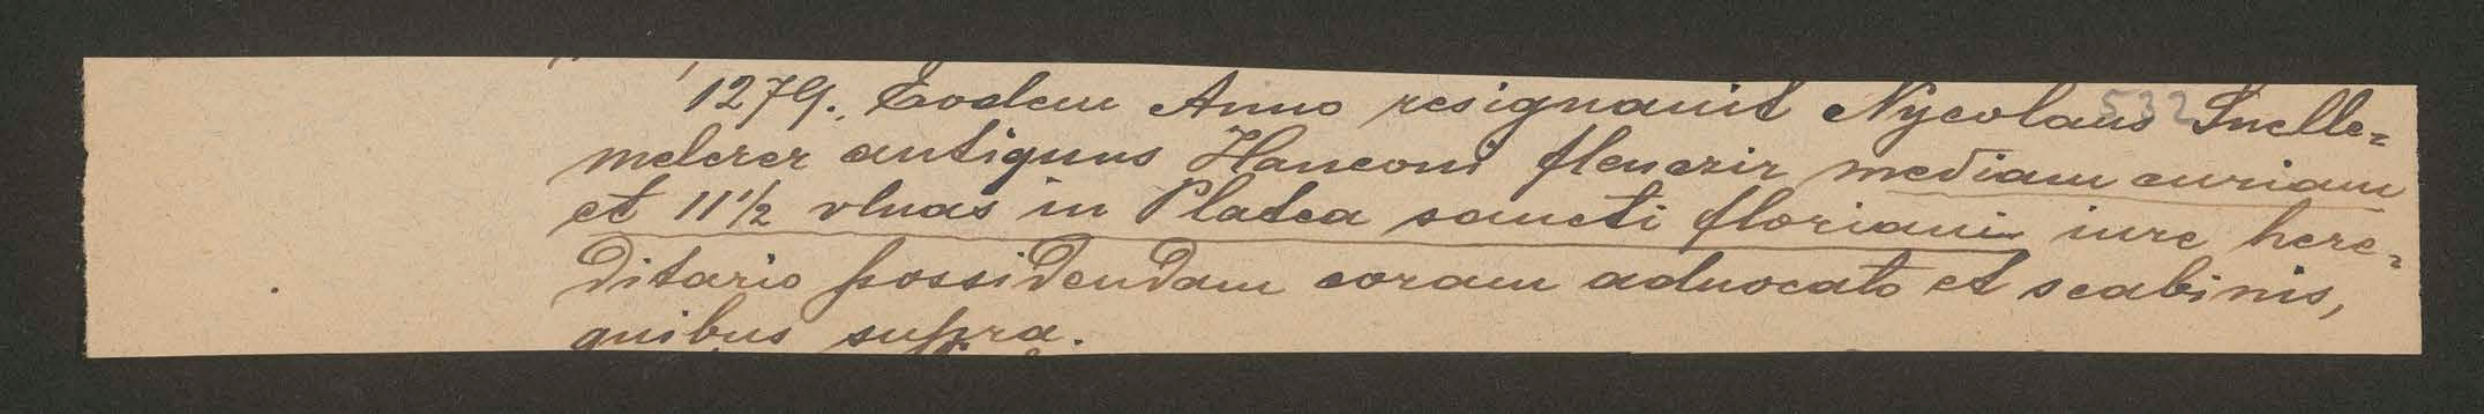 1279. Eodem Anno resignauit Nycolaus 532 Snelle=
melcrer antiquus Hanconi flenerir mediam curiam
et 11 1/2 vlnas in Platea sancti floriani iure here=
ditario possidendam coram aduocato et scabinis,
quibus supra.